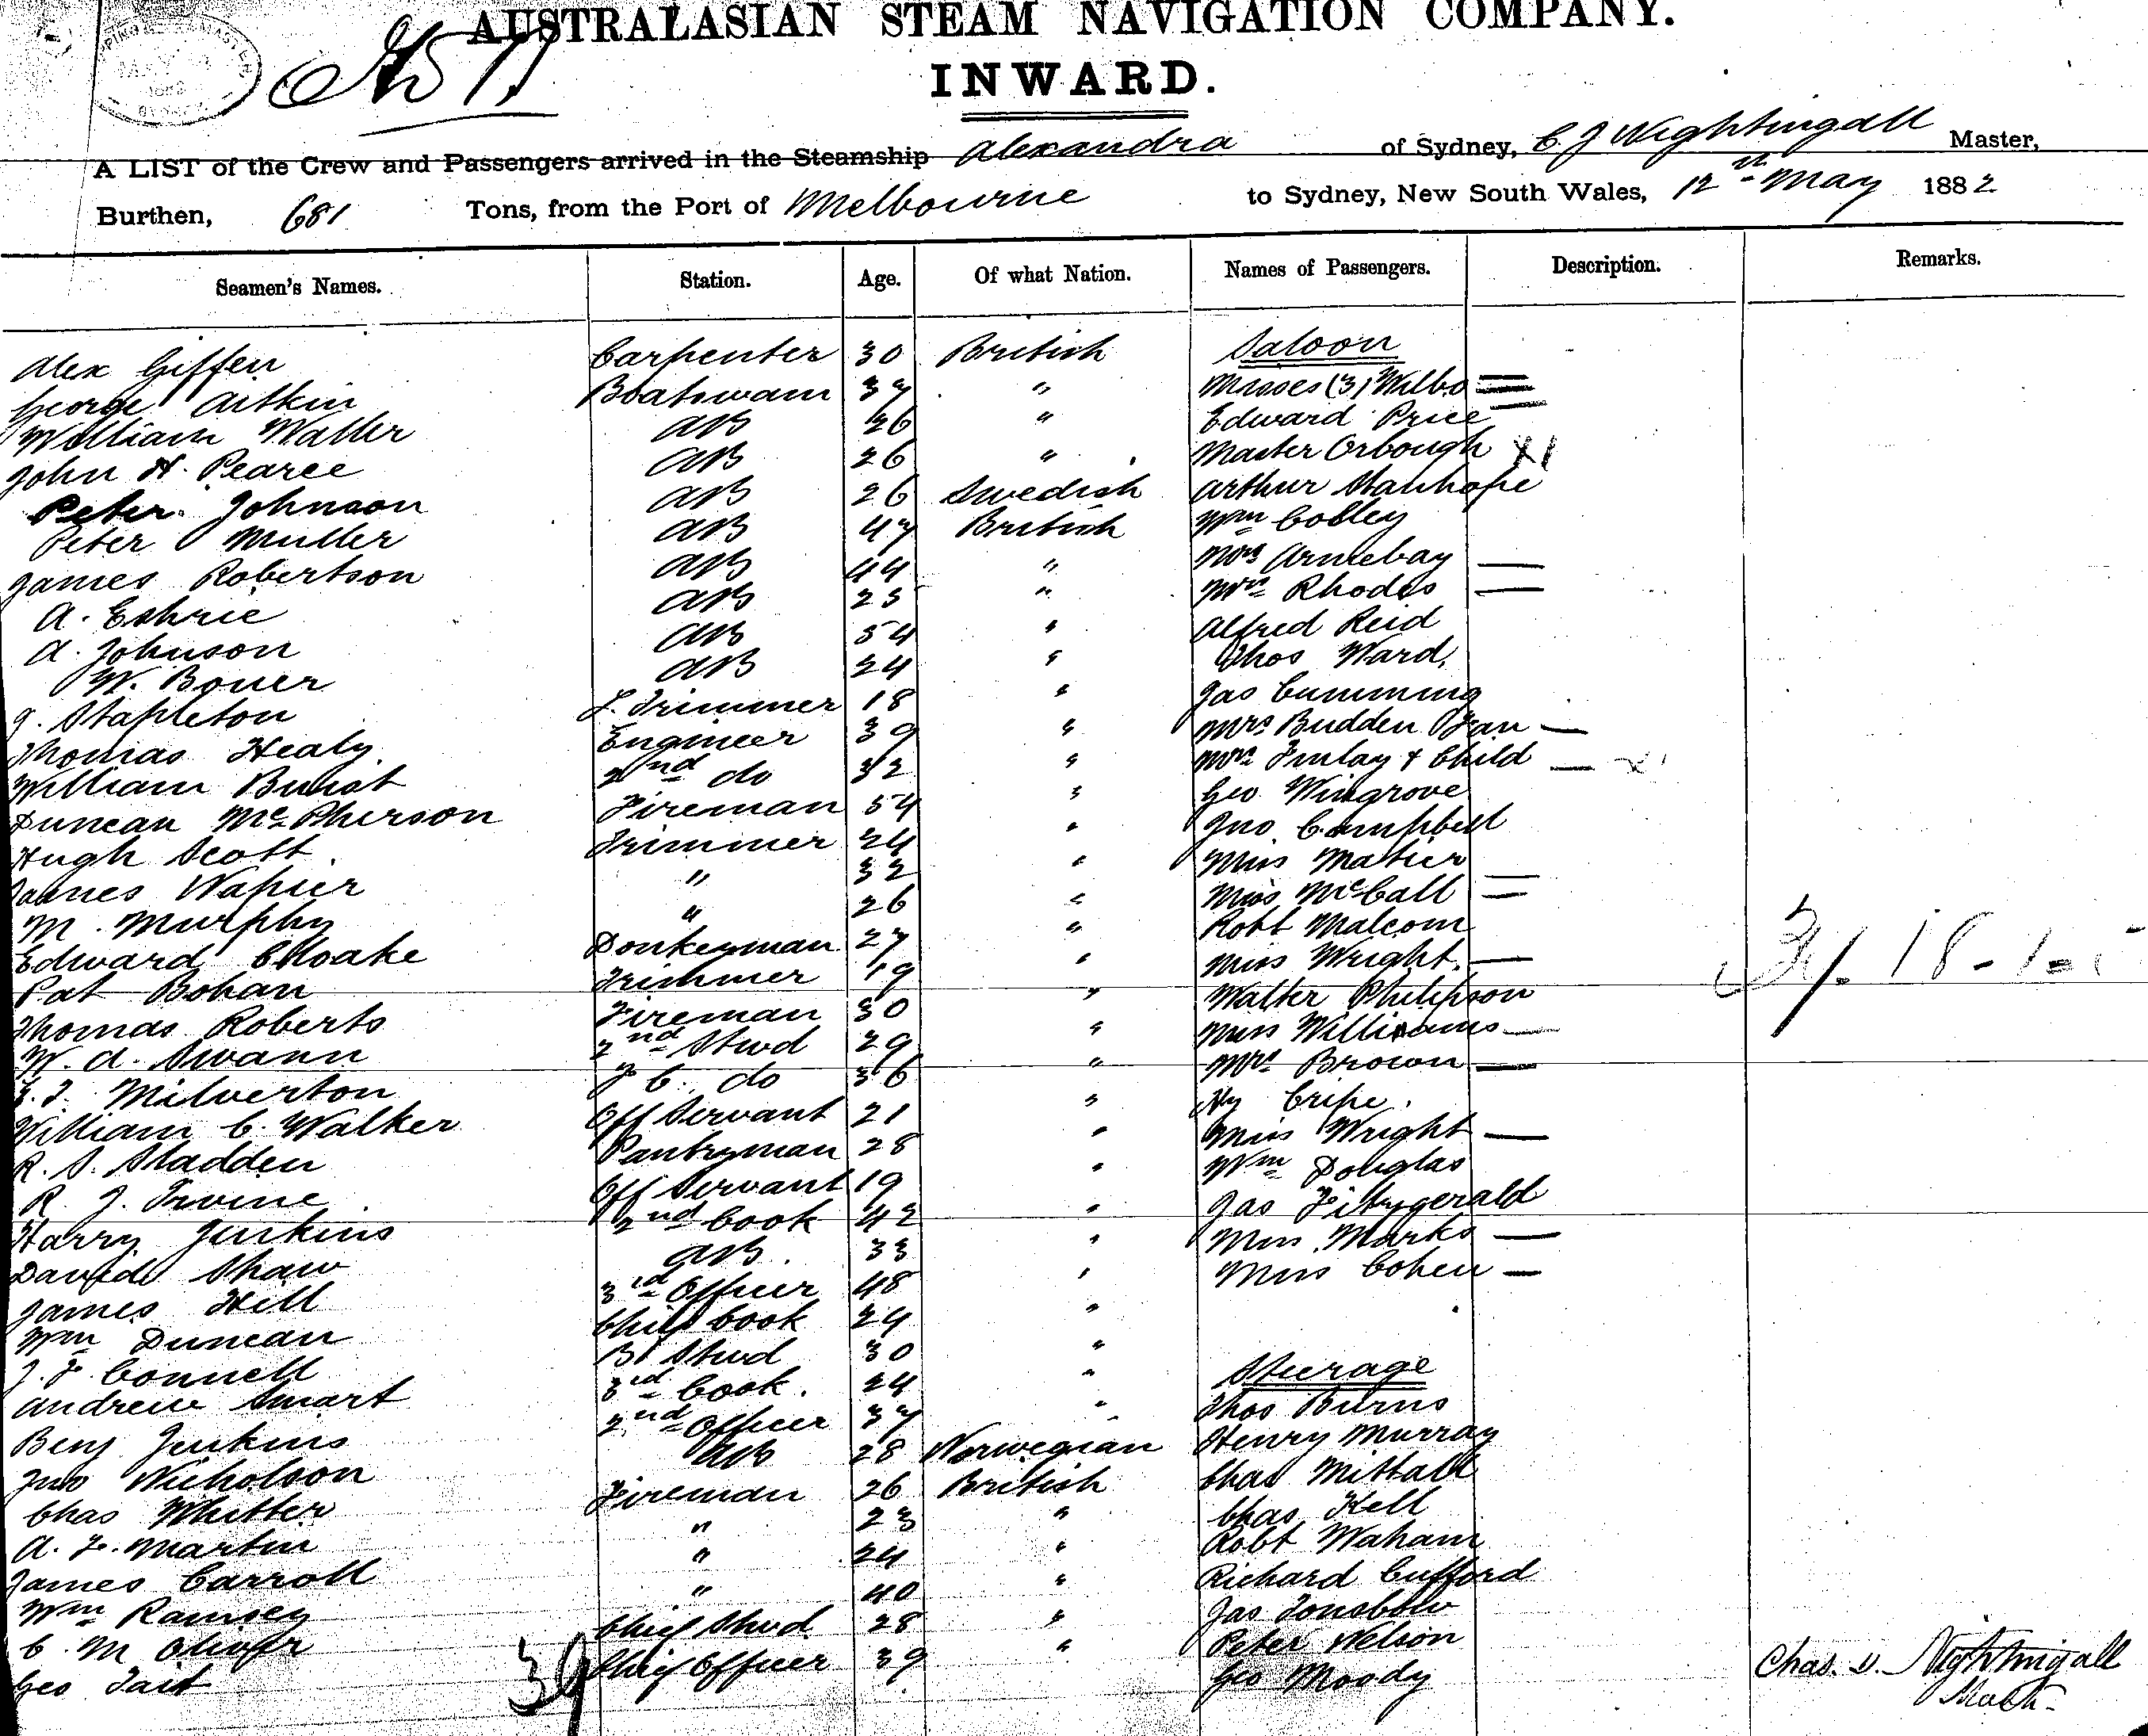 AUSTRALASIAN STEAM NAVIGATION COMPANY.
INWARD.
A LIST of the Crew and Passengers arrived in the Steamship Alexandra of Sydney, C. J Nightingall Master,
Burthen, 681 Tons, from the Port of Melbourne to Sydney, New South Wales, 12th May 1882
Seamen's Names. Station. Age. Of what Nation. Names of Passengers. Description. Remarks.
Alex Giffen Carpenter 30 British Saloon
George Aitkin Boatswain 37 " Misses (3) Wilbo
William Waller AB 26 " Edward Price
John H. Pearce AB 26 " Master Orbough X1
Peter Johnson AB 26 Swedish Arthur Stanhope
Peter Muller AB 47 British Wm Cobley
James Robertson AB 44 " Mrs Armebay
A. Eshrie AB 25 " Mrs Rhodes
A. Johnson AB 54 " Alfred Reid
W. Bouer AB 24 " Thos Ward
J. Stapleton L. Trimmer 18 " Jas Cumming
Thomas Healy Engineer 39 " Mrs Budden
William Buist 2nd do 32 " Mrs Finlay & Child
Duncan McPherson Fireman 54 " Geo Wingrove
Hugh Scott Trimmer 24 " Jno Campbell
James Napier " 32 " Miss Matier
M. Murphy " 26 " Miss McCall
Edward Choake Donkeyman 27 " Robt Malcom
Pat Bohan Trimmer 19 " Miss Wright
Thomas Roberts Fireman 30 " Walter Philipson
W. A. Swann 2nd Stwd 29 " Miss Williams
Milverton do 36 " Mrs Brown
William C. Walker Off Servant 21 " Hy Cripe.
R. S. Sladden Pantryman 28 " Miss Wright
R. J. Irvine Off Servant 19 " Wm Douglas
Harry Jenkins 2nd Cook 42 " Jas Fitzgerald
David Shaw AB 33 " Miss Marks
James Hill 3rd Officer 48 " Miss Cohen
Wm Duncan Chief Cook 24 "
J. F. Connell Stwd 30 "
Andrew Smart 3rd Cook. 24 " Steerage
Benj Jenkins 2nd Officer 37 " Thos Burns
Jno Nicholson AB 28 Norwegian Henry Murray
Chas Whitter Fireman 26 British Chas Mittall
A. F. Martin " 23 " Chas Kell
James Carroll " 24 " Robt Waham
Wm Ramsey " 40 " Richard Cufford
C. M Oliver Chief Stwd 28 " Jas Tonsbow
Geo Tait Chief Officer 39 " Peter Nelson
39 Geo Moody
Chas. J. Nightingall